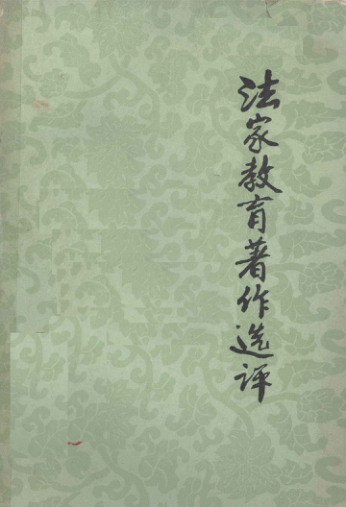 法家教育著作选评